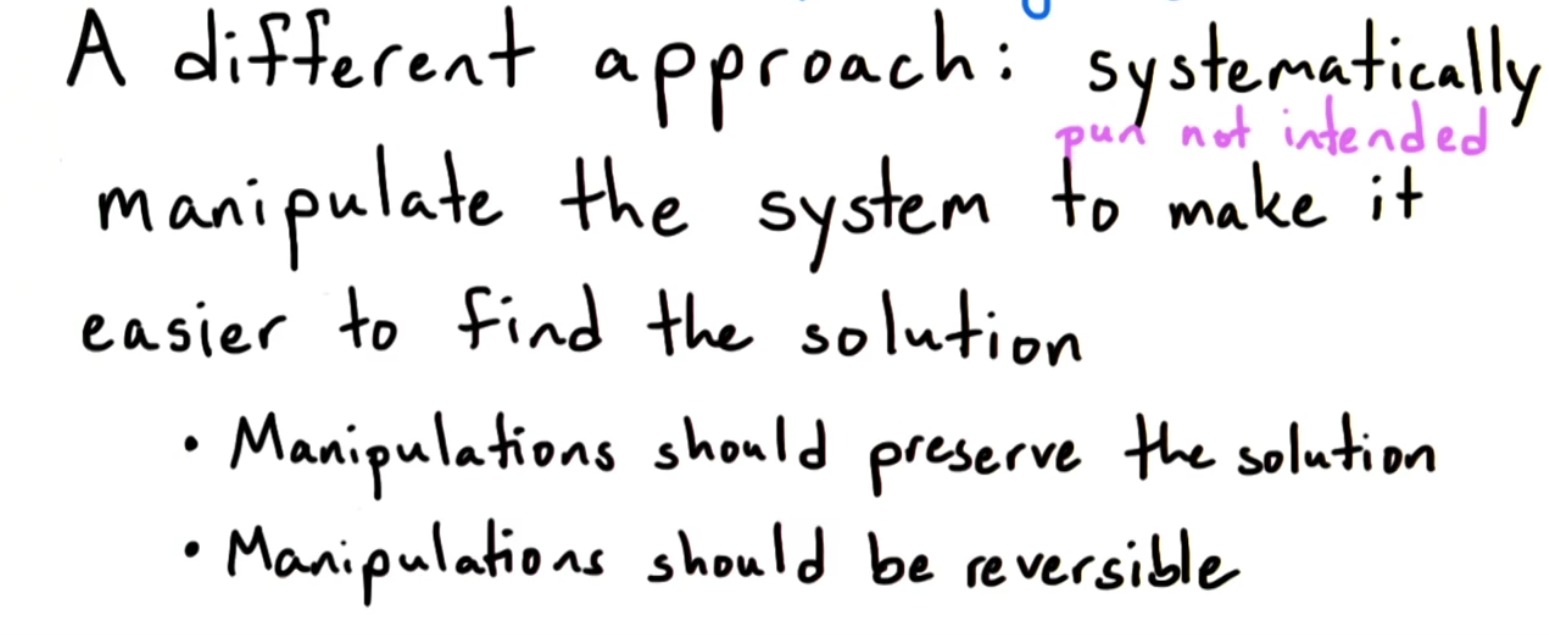 A different approach: systematically
pun not intended
manipulate the system to make it
easier to find the solution
• Manipulations should preserve the solution
• Manipulations should be reversible